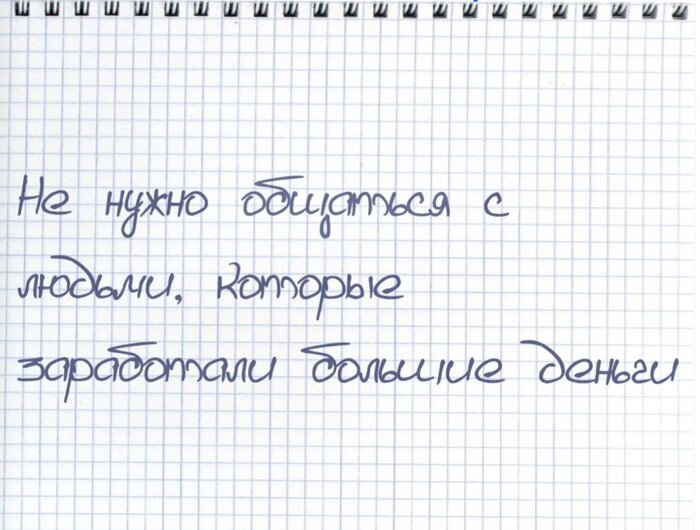 Не нужно общаться с
людьми, которые
заработали большие деньги